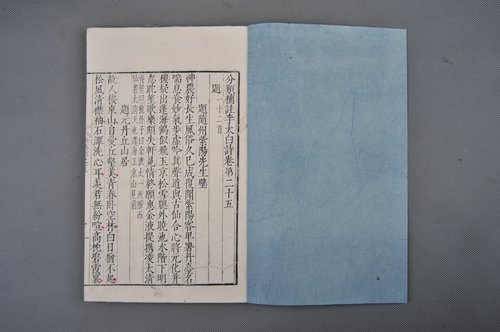 分類補註李太白詩卷第二十五
題一十二首
題隨州紫陽先生壁
神農好長生風俗久已成復聞紫陽客早署丹臺名
喘息飡妙氣步虛吟真聲道與古仙合心將元化并
樓疑出蓬海鶴似飛玉京松雪牕外曉池水階下明
忽耽笙歌樂頗失軒冕情終願惠金液提攜凌太清
題元丹丘山居
故人棲東山自愛丘壑美青春卧空林白日猶不起
松風清襟袖石潭洗心耳羨君無紛喧高枕碧霞裏